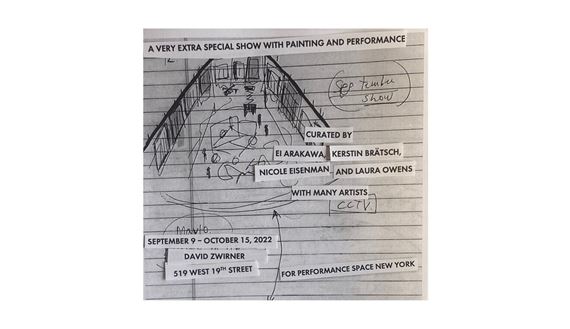 A VERY EXTRA SPECIAL SHOW WITH PAINTING AND PERFORMANCE
12
September
show
CURATED BY
EI ARAKAWA, KERSTIN BRÄTSCH,
NICOLE EISENMAN, AND LAURA OWENS
WITH MANY ARTISTS
CCTV
SEPTEMBER 9 – OCTOBER 15, 2022
DAVID ZWIRNER
519 WEST 19TH STREET
FOR PERFORMANCE SPACE NEW YORK